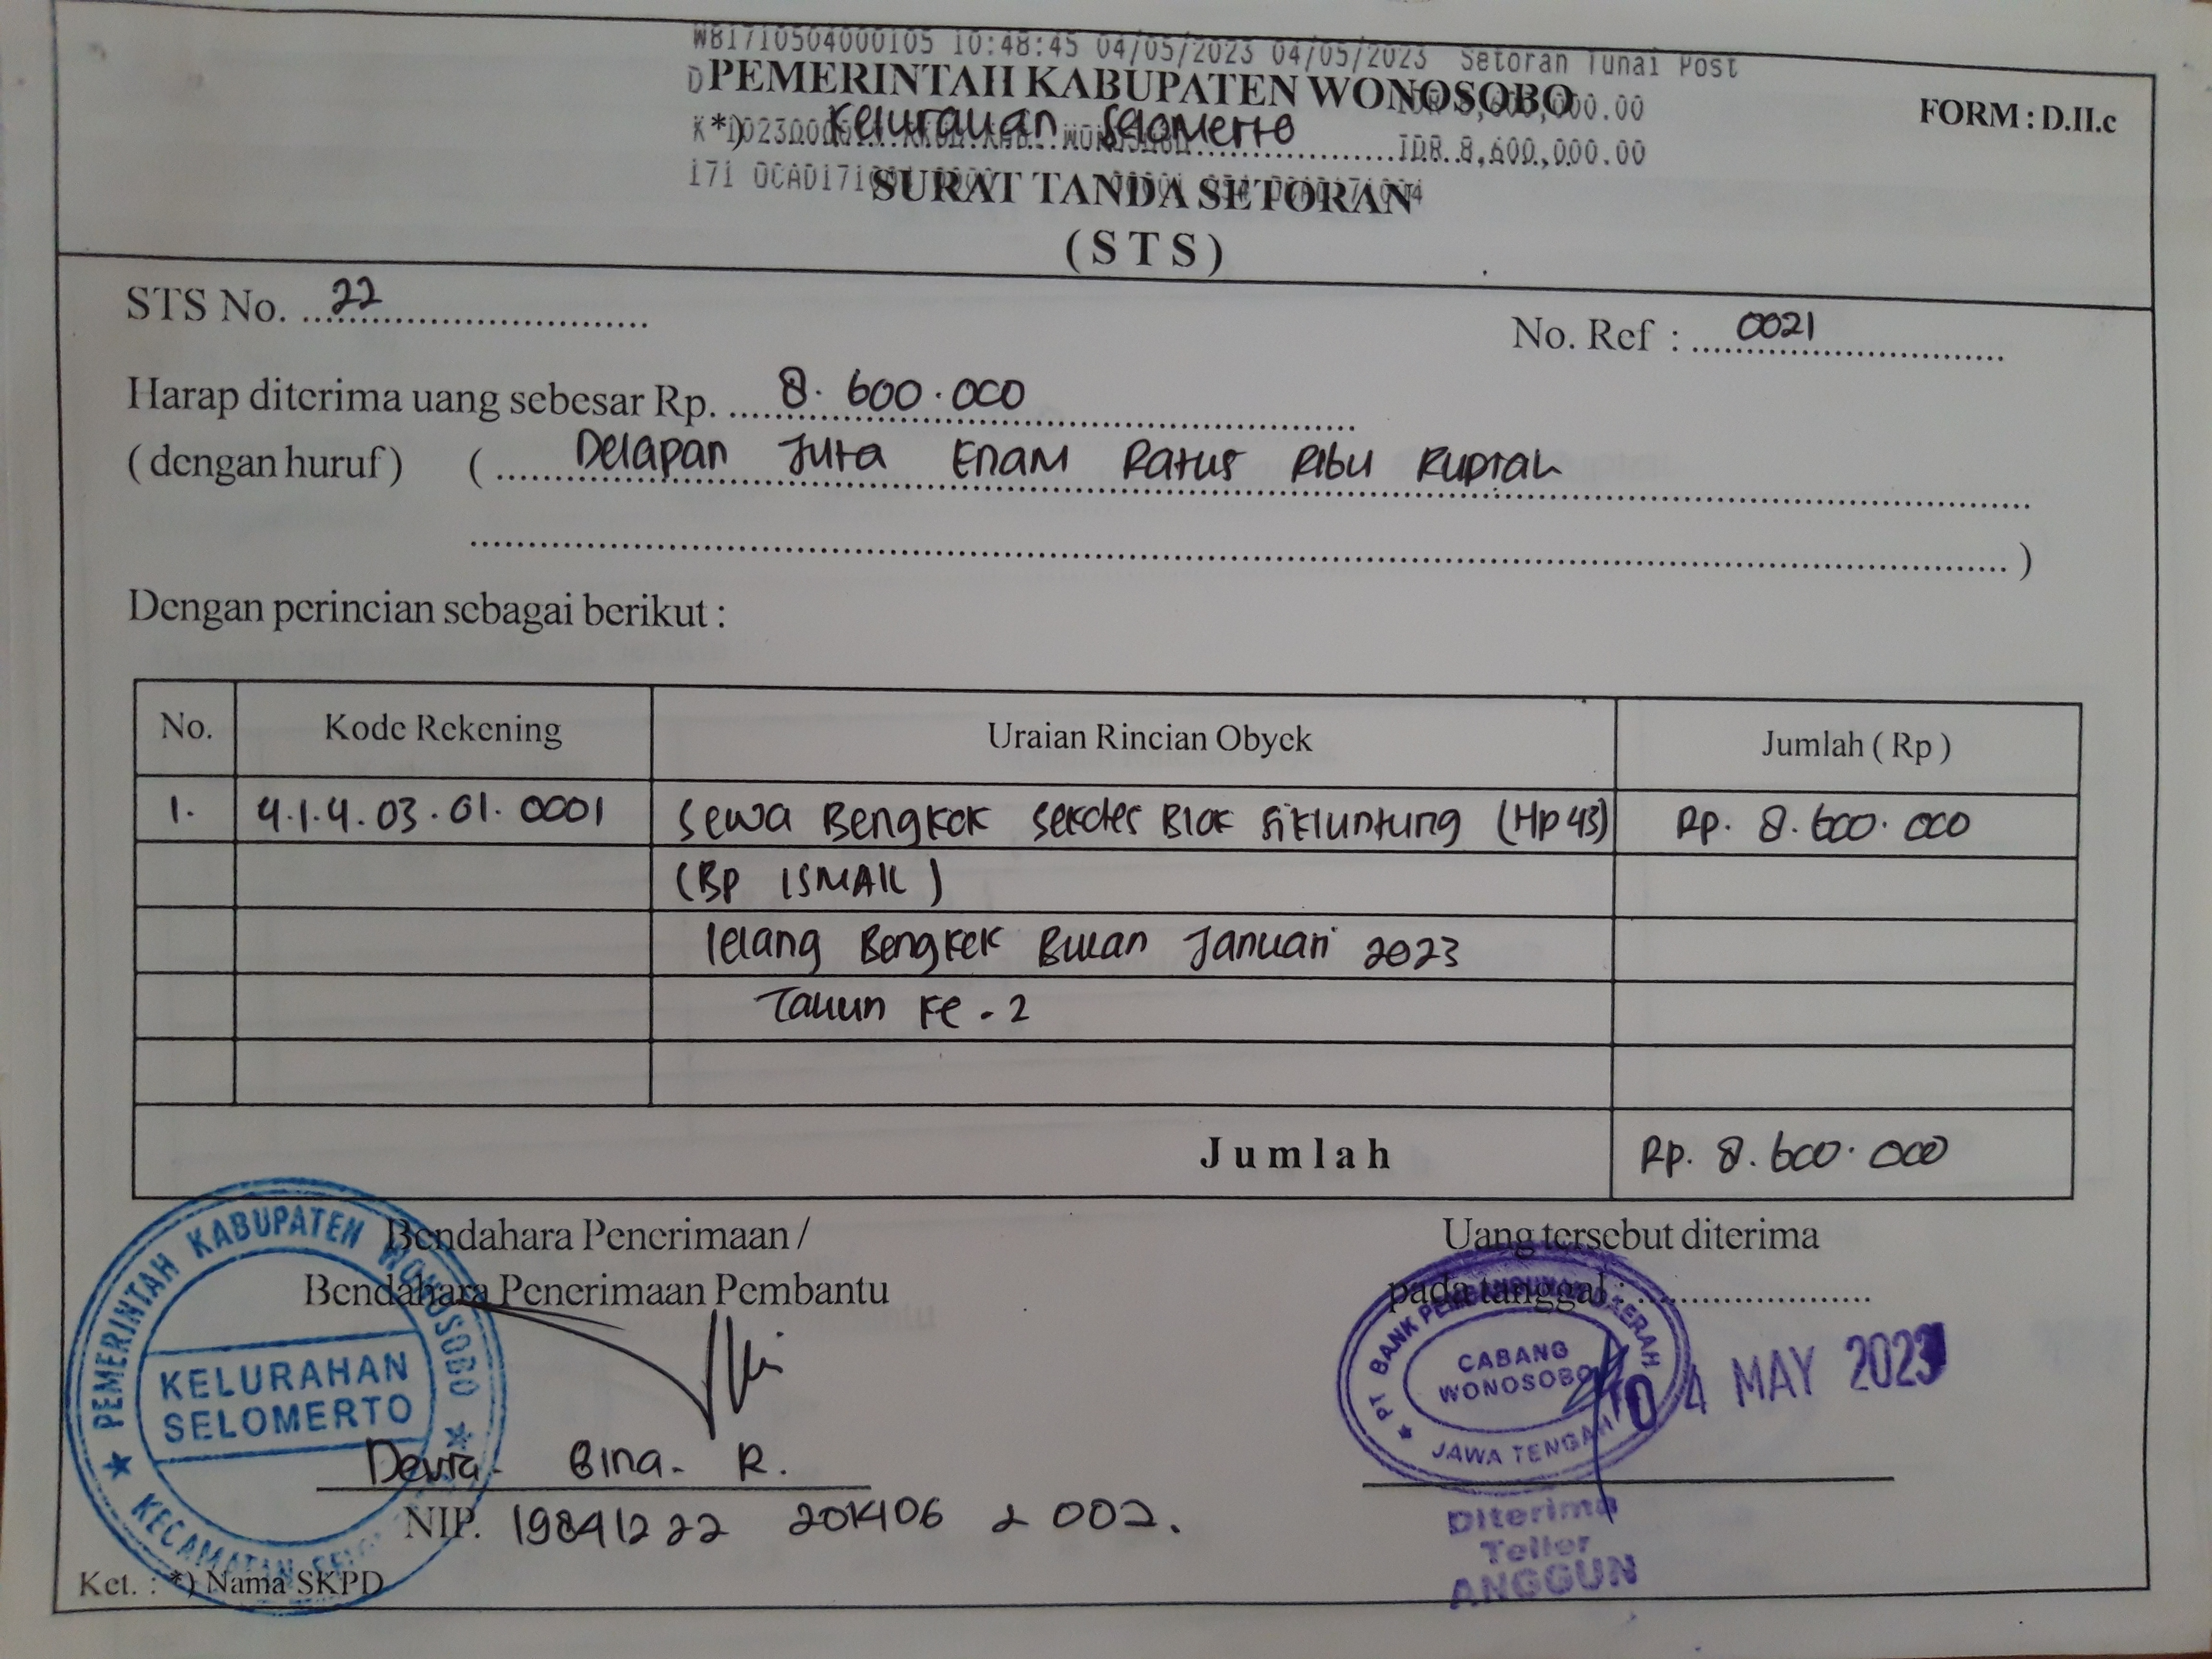 W81710504000105 10:48:45 04/05/2023 04/05/2023 Setoran Tunai Post
PEMERINTAH KABUPATEN WONOSOBO
FORM : D.II.c
*) Kelurahan Selomerto
IDR 8,600,000.00
SURAT TANDA SETORAN
( S T S )
STS No. 22
No. Ref : 0021
Harap diterima uang sebesar Rp. 8.600.000
( dengan huruf ) ( Delapan Juta Enam Ratus Ribu Rupiah
)
Dengan perincian sebagai berikut :
No. Kode Rekening Uraian Rincian Obyek Jumlah ( Rp )
1. 4.1.4.03.01.0001 Sewa Bengkok Sekdes Blok Sikluntung (Hp 43) Rp. 8.600.000
(Bp ISMAIL)
lelang Bengkok Bulan Januari 2023
Tahun ke - 2
Jumlah Rp. 8.600.000
Bendahara Penerimaan /
Bendahara Penerimaan Pembantu
Uang tersebut diterima
pada tanggal :
PEMERINTAH KABUPATEN WONOSOBO
KELURAHAN
SELOMERTO
KECAMATAN
PT BANK PEMBANGUNAN DAERAH
CABANG
WONOSOBO
JAWA TENGAH
04 MAY 2023
Bina. R.
NIP. 19841222 201406 2 002.
Diterima
Teller
ANGGUN
Ket. : *) Nama SKPD